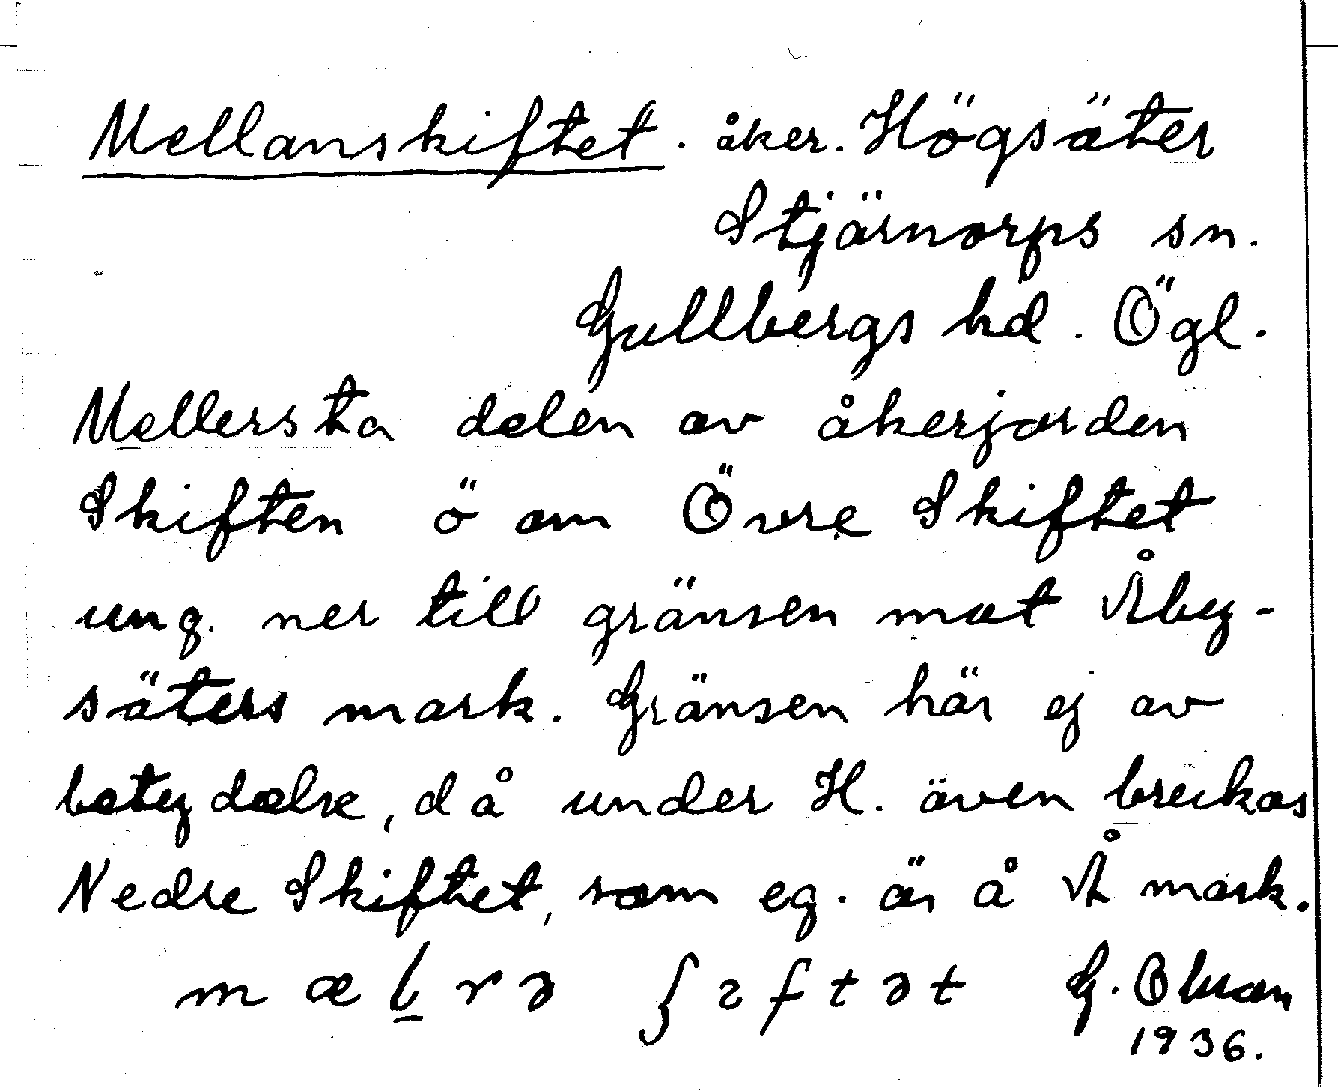 Mellanskiftet. åker. Högsäter
Stjärnorps sn.
Gullbergs hd. Ögl.
Mellersta delen av åkerjorden
Skiften ö om Övre Skiftet
ung. ner till gränsen mot Åby-
säters mark. Gränsen här ej av
betydelse, då under H. även brukas
Nedre Skiftet, som eg. är å Å mark.
m æ l r ə ʃ ɿ f t ə t G. Olsson
1936.